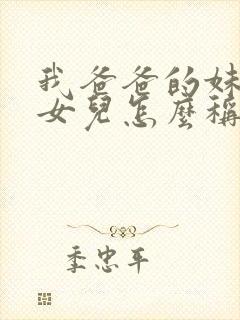 我爸爸的妹
女兒怎麼稱
季忠平